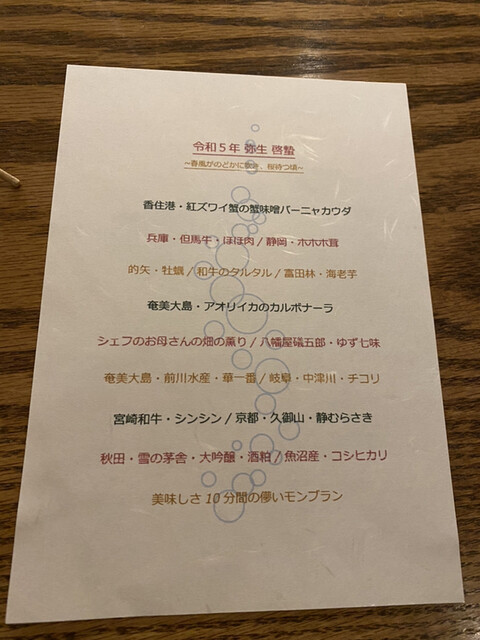 令和５年 弥生 啓蟄
~春風がのどかに吹き、桜待つ頃~
香住港・紅ズワイ蟹の蟹味噌バーニャカウダ
兵庫・但馬牛・ほほ肉 / 静岡・ホホホ茸
的矢・牡蠣 / 和牛のタルタル / 富田林・海老芋
奄美大島・アオリイカのカルボナーラ
シェフのお母さんの畑の薫り / 八幡屋礒五郎・ゆず七味
奄美大島・前川水産・華一番 / 岐阜・中津川・チコリ
宮崎和牛・シンシン / 京都・久御山・静むらさき
秋田・雪の茅舎・大吟醸・酒粕 / 魚沼産・コシヒカリ
美味しさ 10 分間の儚いモンブラン